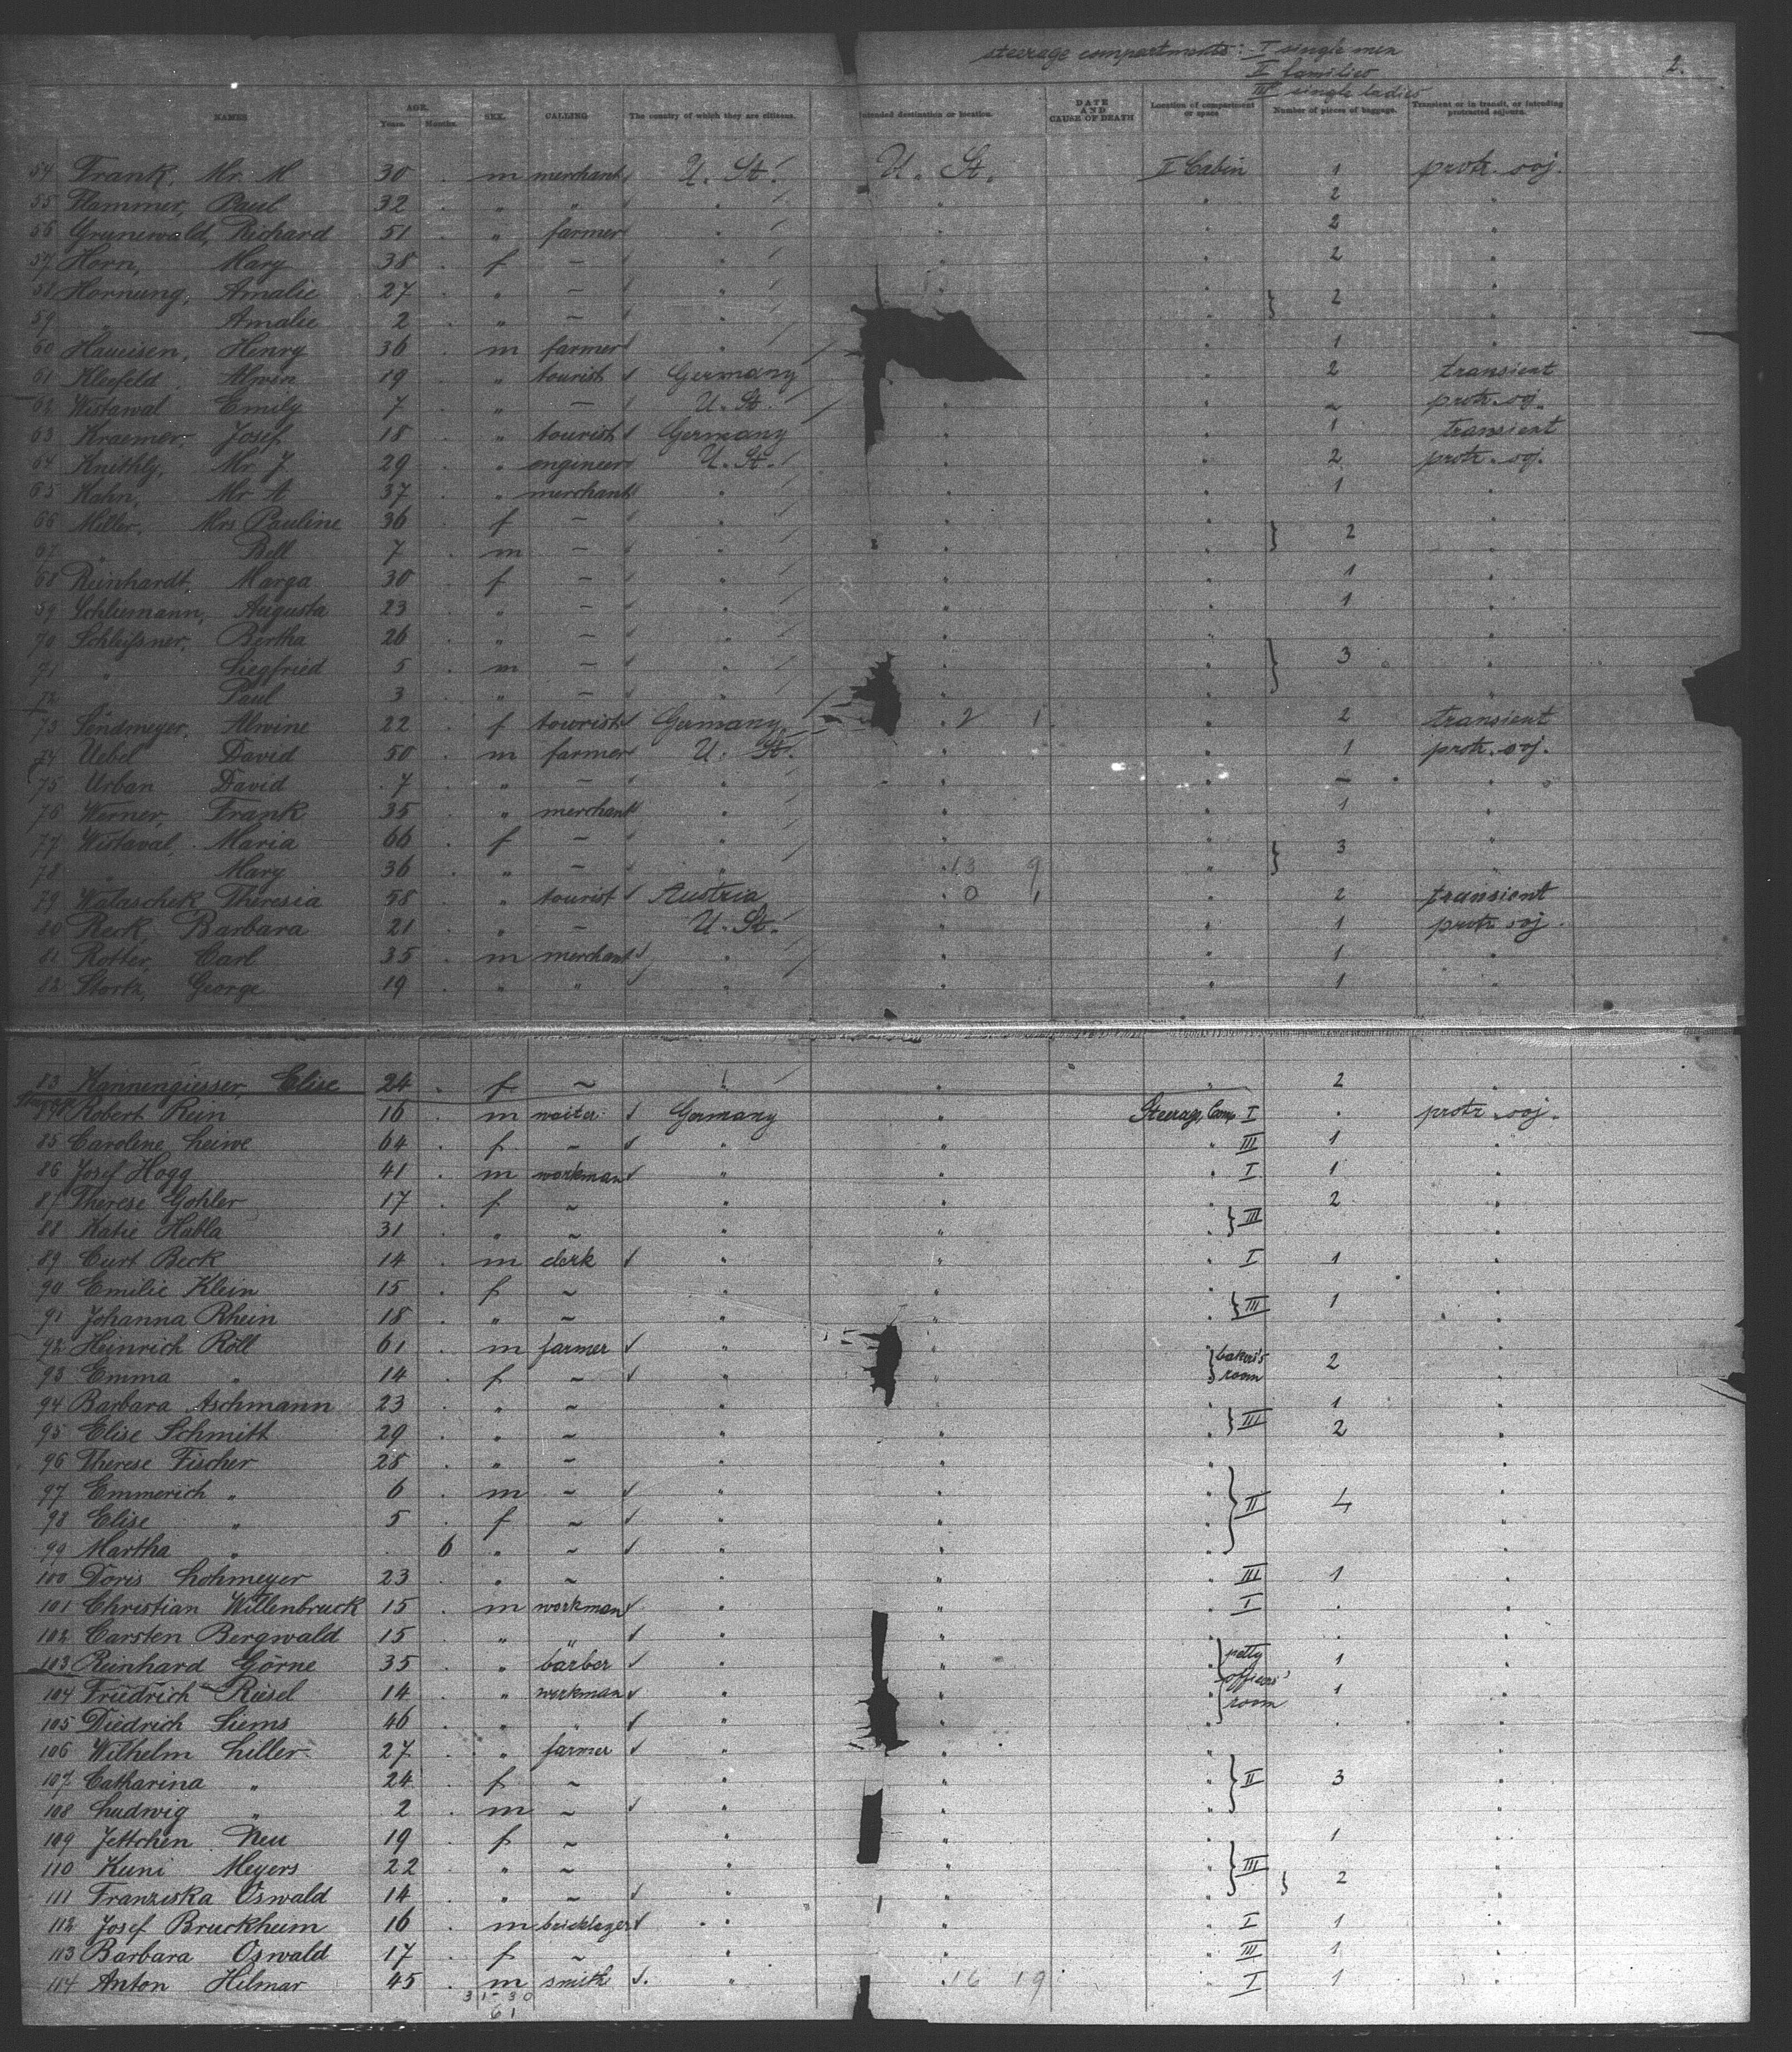 steerage compartments: I single men
II families
III single ladies
2.
NAMES AGE. Years. Months. SEX. CALLING The country of which they are citizens. Intended destination or location. DATE AND CAUSE OF DEATH Location of compartment or space Number of pieces of baggage. Transient or in transit, or intending protracted sojourn.
54 Frank, Mr. M 30 m merchant U. St. U. St. II Cabin 1 protr. soj.
55 Hammer, Paul 32 " " " " " 2 "
56 Grunewald, Richard 51 " farmer " " " 2 "
57 Horn, Mary 38 f – " " " 2 "
58 Hornung, Amalie 27 " – " " " } 2 "
59 " Amalie 2 " – " " "
60 Haueisen, Henry 36 m farmer " " 1 "
61 Kleefeld Alwin 19 " tourist Germany " 2 transient
62 Wistawal Emily 7 " – U. St. " " ~ protr. soj.
63 Kraemer, Josef 18 " tourist Germany " 1 transient
64 Knithly, Mr J. 29 " engineer U. St. " " 2 protr. soj.
65 Kahn, Mr A 37 " merchant " " " 1 "
66 Miller, Mrs Pauline 36 f – " " " } 2 "
67 " Bell 7 m – " " "
68 Reinhardt, Marga 30 f – " " " 1 "
69 Schliemann, Augusta 23 " – " " " 1 "
70 Schleissner, Bertha 26 " – " " " } 3 "
71 " Siegfried 5 m – " " " "
72 " Paul 3 " – " " " "
73 Sendmeyer, Alwine 22 f tourist Germany " 2 1 " 2 transient
74 Uebel David 50 m farmer U. St. " " 1 protr. soj.
75 Urban David 7 " – " " " – "
76 Werner, Frank 35 " merchant " " " 1 "
77 Wistaval, Maria 66 f – " " " } 3 "
78 " Mary 36 " – " " 13 9 " "
79 Walaschek Theresia 58 " tourist Austria " 0 1 " 2 transient
80 Reck, Barbara 21 " – U. St. " " 1 protr. soj.
81 Rotter, Carl 35 m merchant " " " 1 "
82 Stortz, George 19 " " " " " 1 "
83 Kannengiesser, Elise 24 f ~ " " 2 "
84 Robert Rein 16 m waiter Germany " Steerage Comp I " protr. soj.
85 Caroline Leiwe 64 f ~ " " " III 1 "
86 Josef Hogg 41 m workman " " " I 1 "
87 Therese Gohler 17 f ~ " " " } III 2 "
88 Katie Habla 31 " ~ " " "
89 Curt Beck 14 m clerk " " " I 1 "
90 Emilie Klein 15 f ~ " " " } III 1 "
91 Johanna Rhein 18 " ~ " " " "
92 Heinrich Röll 61 m farmer " " } baker's room 2 "
93 Emma " 14 f ~ " "
94 Barbara Aschmann 23 " ~ " " " } III 1 "
95 Elise Schmitt 29 " ~ " " " 2 "
96 Therese Fischer 28 " ~ " " " } II 4 "
97 Emmerich " 6 m ~ " " " "
98 Elise " 5 f ~ " " " "
99 Martha " 6 " ~ " " " "
100 Doris Lohmeyer 23 " ~ " " " III 1 "
101 Christian Willenbruck 15 m workman " " " I " "
102 Carsten Bergwald 15 " " " " } petty officers' room " "
103 Reinhard Görne 35 " barber " " 1 "
104 Friedrich Riesel 14 " workman " " " 1 "
105 Diedrich Siems 46 " " " " " " "
106 Wilhelm Liller 27 " farmer " " " } II 3 "
107 Catharina " 24 f ~ " " " "
108 Ludwig " 2 m ~ " " " "
109 Jettchen Neu 19 f ~ " " } III 1 "
110 Kuni Meyers 22 " ~ " " } 2 "
111 Franziska Oswald 14 " ~ " " "
112 Josef Bruckheim 16 m bricklayer " " " I 1 "
113 Barbara Oswald 17 f ~ " " " III 1 "
114 Anton Hilmar 45 m smith " " 16 19 " I 1 "
31 – 30
61